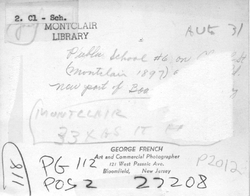 2. Cl - Sch.
MONTCLAIR
LIBRARY
AUG 31
Public School #6 on
(Montclair 1897)
new part of
MONTCLAIR
GEORGE FRENCH
Art and Commercial Photographer
121 West Passaic Ave.
Bloomfield, New Jersey
118
PG 112
P2012
POS 2 27208